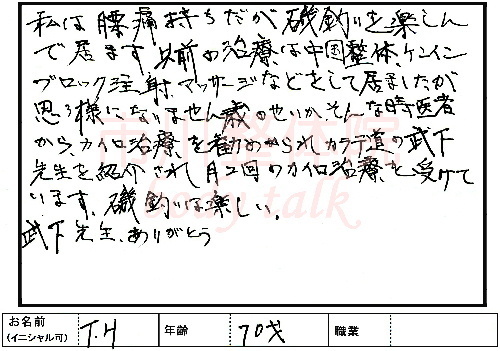 私は腰痛持ちだが磯釣りを楽しん
で居ます 以前の治療は中国整体、ケンイン
ブロック注射、マッサージなどをして居ましたが
思う様になりません 歳のせいか、そんな時医者
から、カイロ治療を勧められ カラテ道の武下
先生を紹介され 月2回のカイロ治療を受けて
います。磯釣りは楽しい。
武下先生、ありがとう
body talk
お名前 (イニシャル可) T.H 年齢 70才 職業